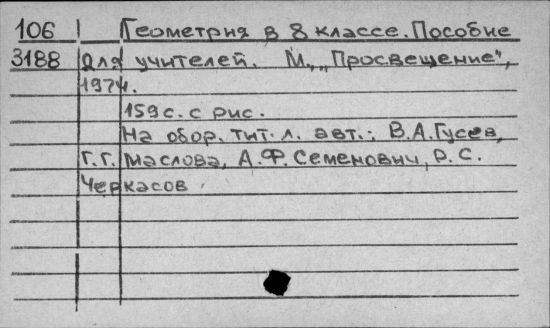 106 Геометрия в 8 классе. Пособие
3188 для учителей. М., „Просвещение",
1974.
159 с. с рис.
На обор. тит. л. авт.: В.А.Гусев,
Г.Г. Маслова, А.Ф. Семенович, Р.С.
Черкасов